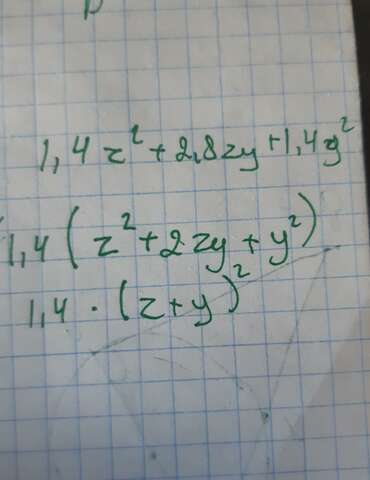 1,4z²+2,8zy+1,4y²
1,4(z²+2zy+y²)
1,4·(z+y)²